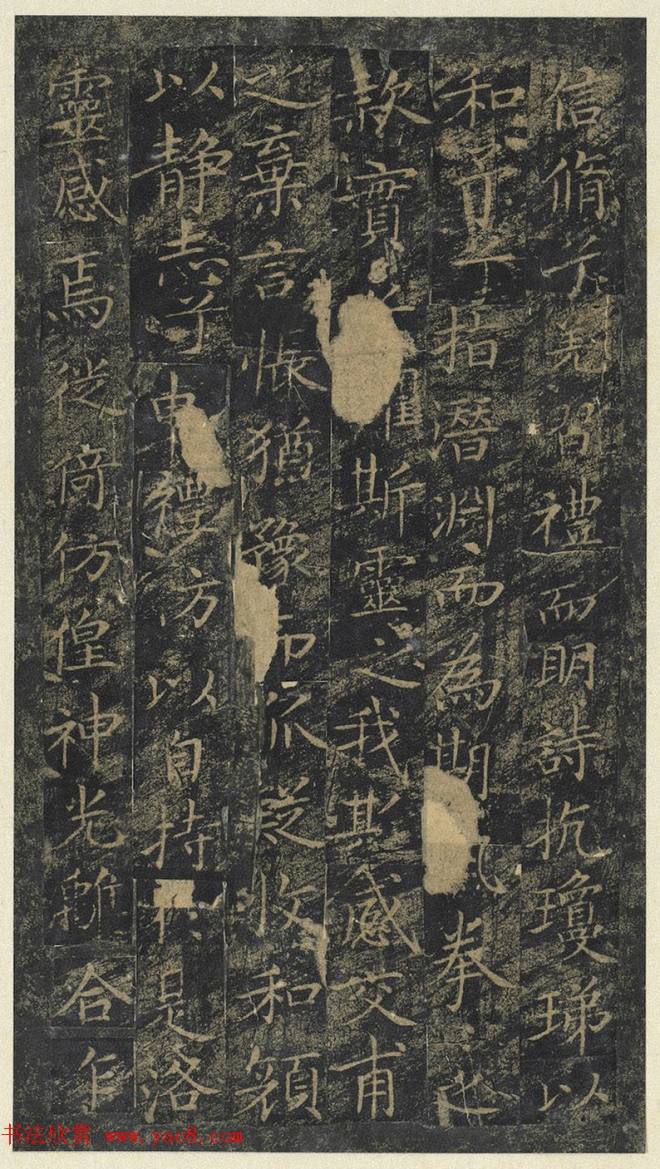 信脩兮羌習禮而明詩抗瓊珶以
和予兮指潛淵而為期拳〻之
款實斯靈之我欺感交甫
之棄言悵猶豫而狐疑收和顔
以静志兮申禮防以自持於是洛
靈感焉徙倚仿偟神光離合乍
书法欣赏 www.yac8.com